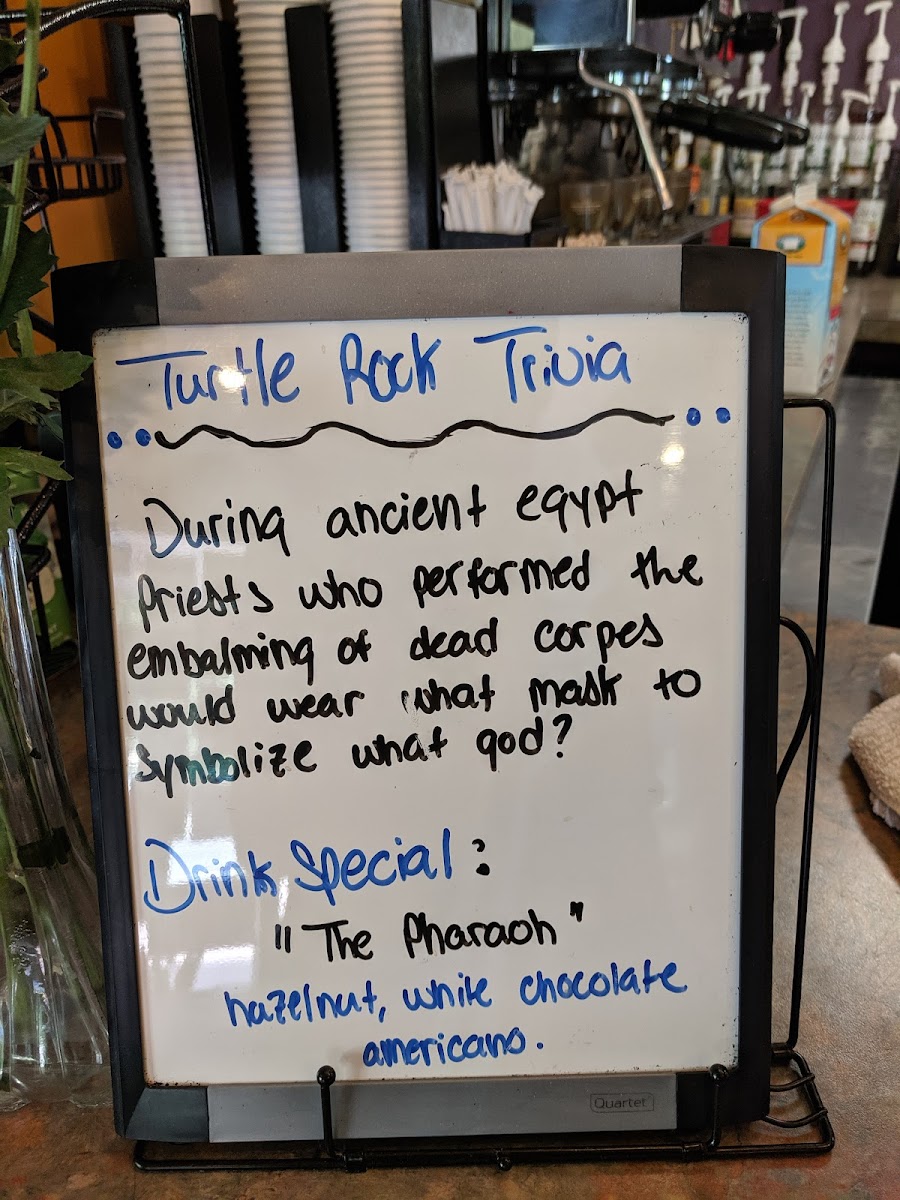 Turtle Rock Trivia
During ancient egypt
Priests who performed the
embalming of dead corpes
would wear what mask to
symbolize what god?
Drink Special:
"The Pharaoh"
hazelnut, white chocolate
americano.
Quartet